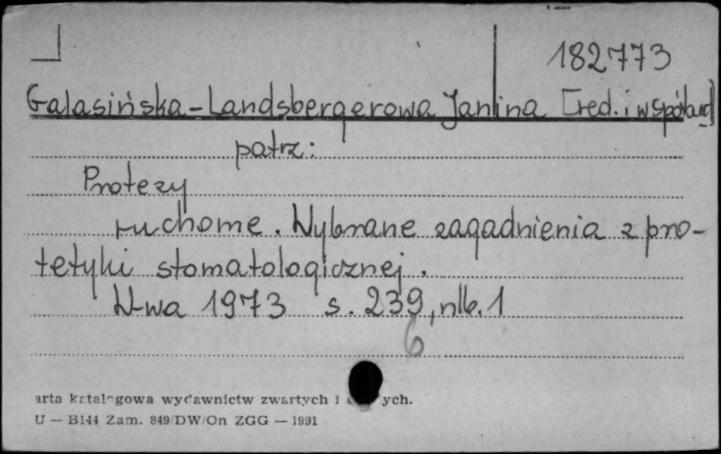 182773
Galasińska-Landsbergerowa Janina [red. i współaut]
patrz:
Protezy
ruchome. Wybrane zagadnienia z pro-
tetyki stomatologicznej.
W-wa 1973 s. 239, nlb. 1
6
arta katalogowa wydawnictw zwartych i ych.
U — B144 Zam. 849/DW/On ZGG — 1991